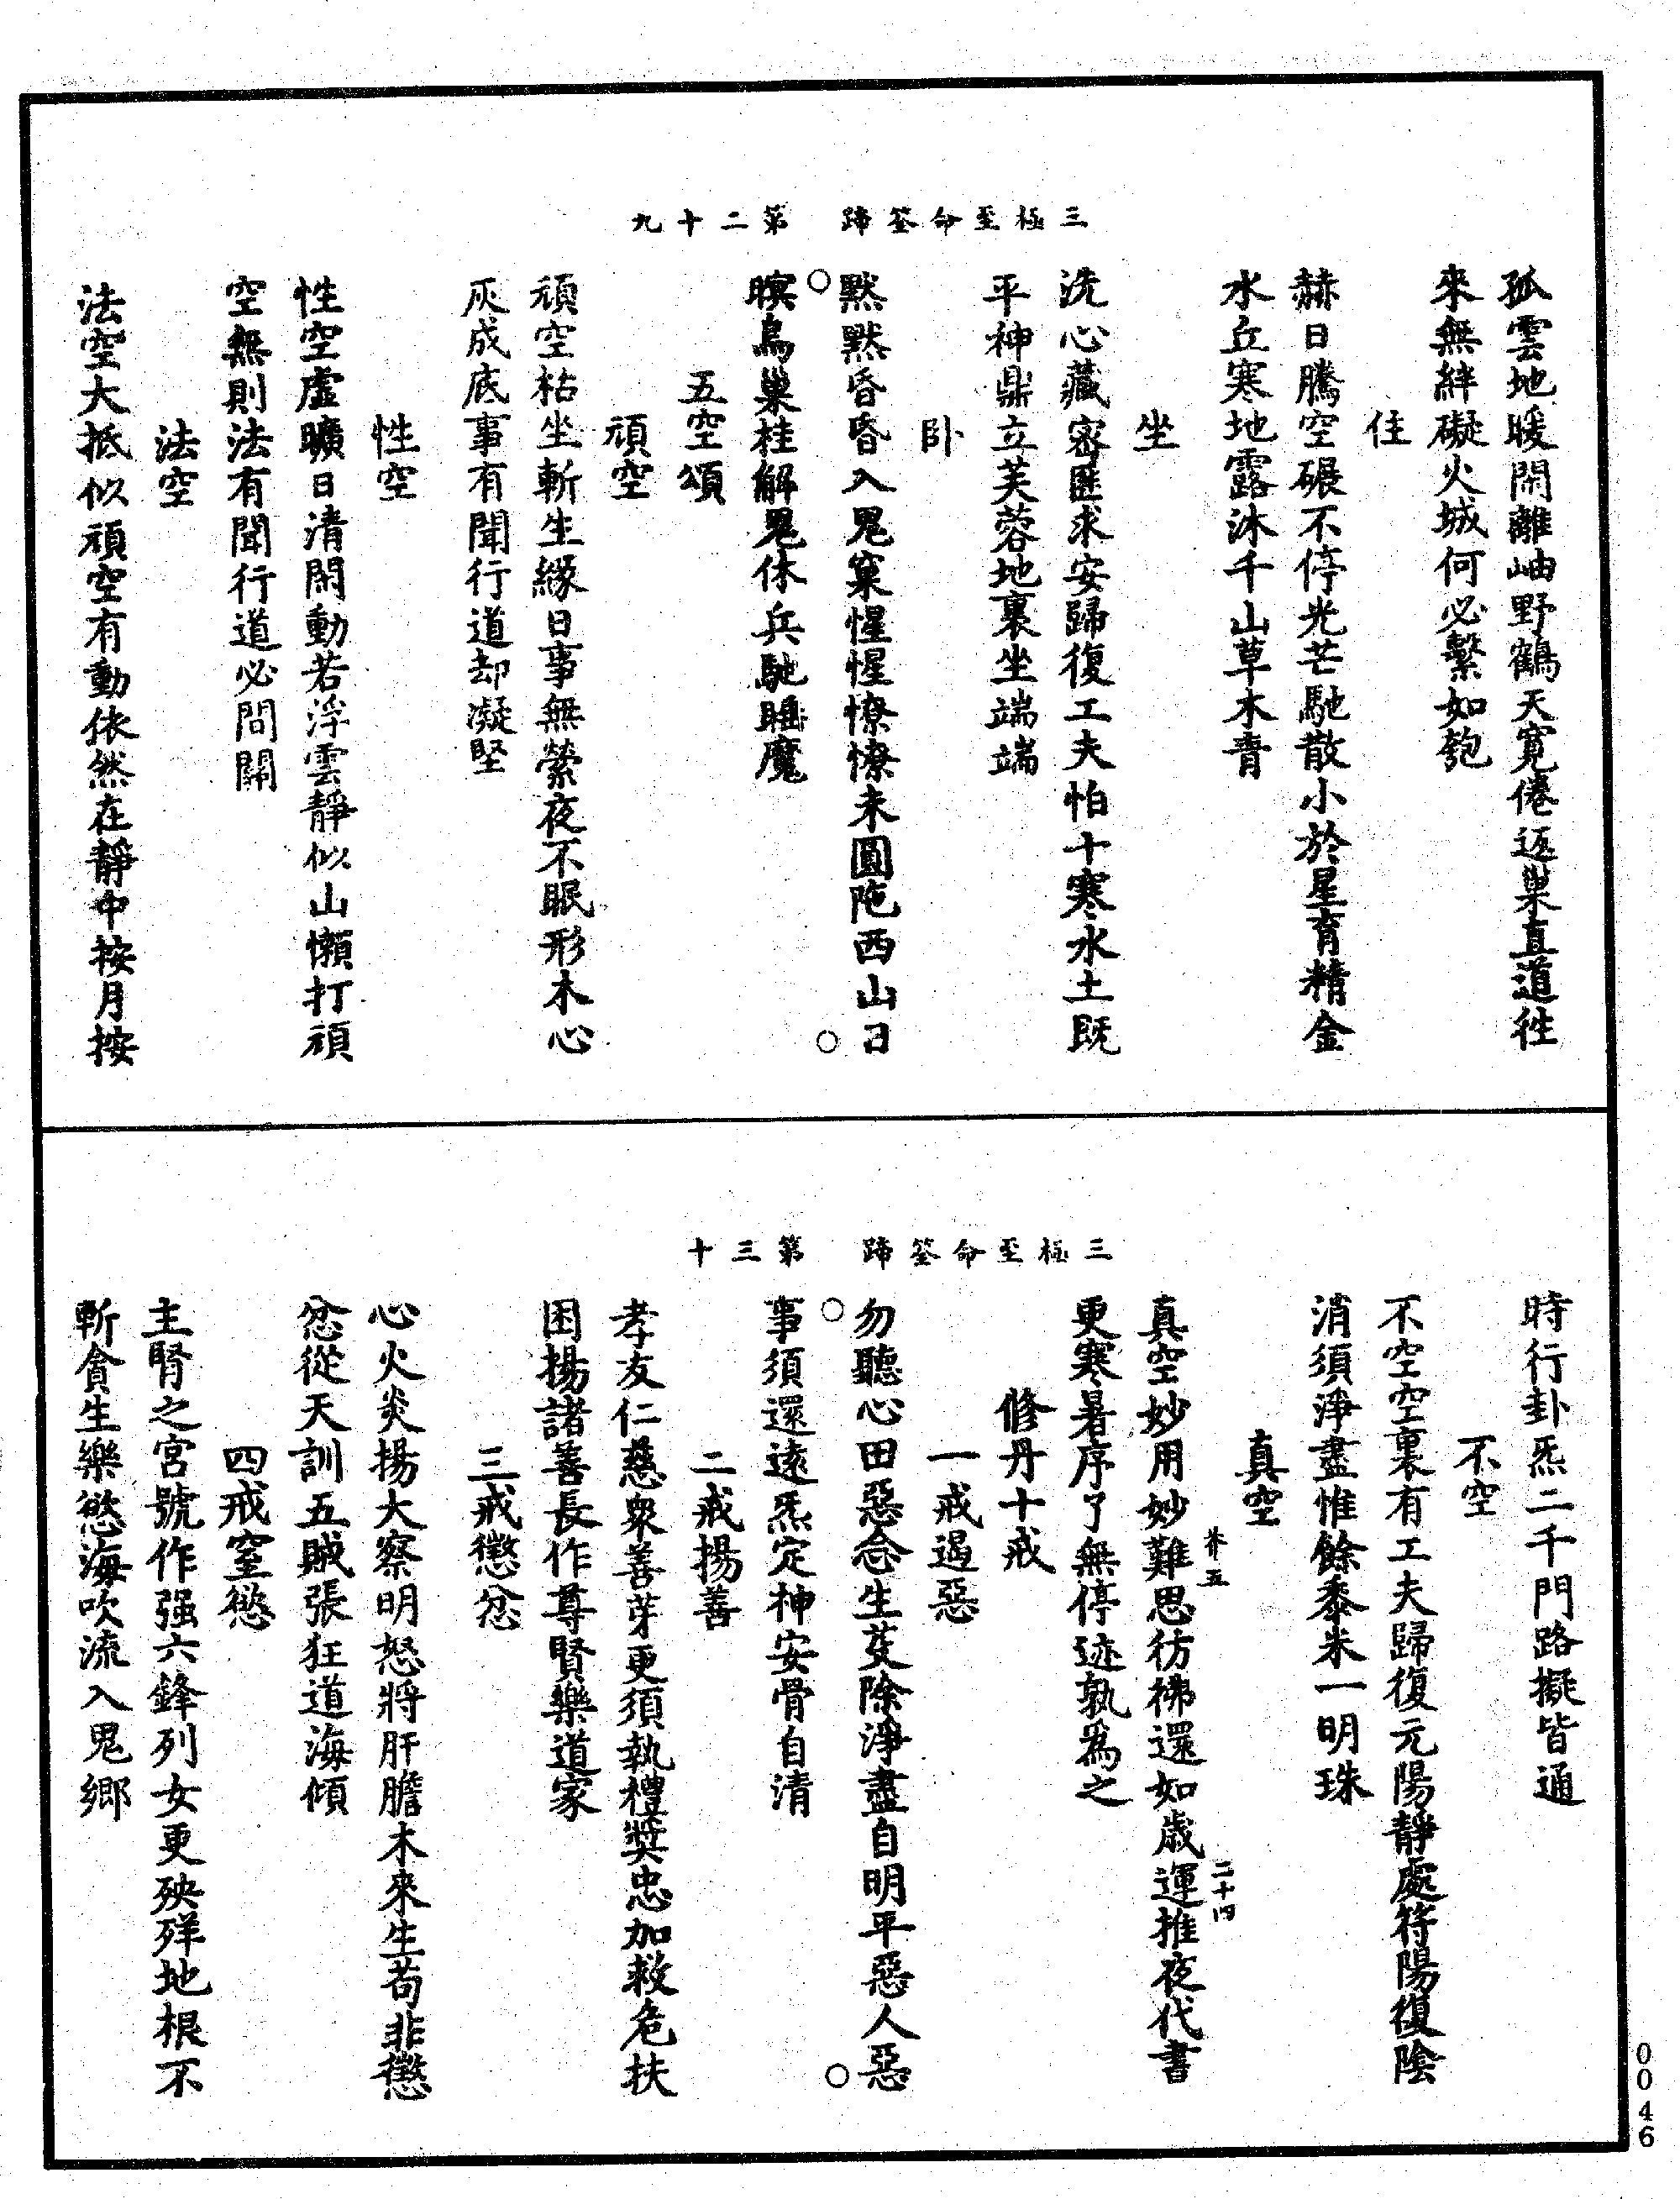 三極至命筌蹄　第二十九
孤雲地暖閑離岫野鶴天寬倦返巢直道往
來無絆礙火城何必繫如匏
住
赫日騰空碾不停光芒馳散小於星育精金
水丘寒地露沐千山草木青
坐
洗心藏密匪求安歸復工夫怕十寒水土既
平神鼎立芙蓉地裏坐端端
卧
默默昏昏入鬼窠惺惺憭憭未圓陁西山日
暝烏巢桂解鬼休兵馳睡魔
五空頌
頑空
頑空枯坐斬生緣日事無縈夜不眠形木心
灰成底事有聞行道却凝堅
性空
性空虛曠日清閑動若浮雲靜似山懶打頑
空無則法有聞行道必問關
法空
法空大抵似頑空有動依然在靜中按月按
三極至命筌蹄　第三十
時行卦炁二千門路擬皆通
不空
不空空裏有工夫歸復元陽靜處符陽復陰
消須淨盡惟餘黍米一明珠
真空
茱五　二十四
真空妙用妙難思彷彿還如歲運推夜代晝
更寒暑序了無停迹孰為之
修丹十戒
一戒遏惡
勿聽心田惡念生芟除淨盡自明平惡人惡
事須還遠炁定神安骨自清
二戒揚善
孝友仁慈衆善芽更須執禮獎忠加救危扶
困揚諸善長作尊賢樂道家
三戒懲忿
心火炎揚大察明怒將肝膽木來生苟非懲
忿從天訓五賊張狂道海傾
四戒窒慾
主腎之宮號作强六鋒列女更殃殃地根不
斬貪生樂慾海吹流入鬼鄉
0046